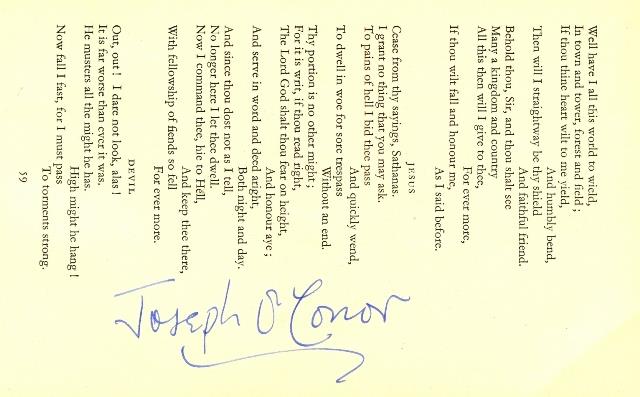 Well have I all this world to wield,
In town and tower, forest and field ;
If thou thine heart wilt to me yield,
And humbly bend,
Then will I straightway be thy shield
And faithful friend.
Behold thou, Sir, and thou shalt see
Many a kingdom and country
All this then will I give to thee,
For ever more,
If thou wilt fall and honour me,
As I said before.
JESUS
Cease from thy sayings, Sathanas.
I grant no thing that you may ask.
To pains of hell I bid thee pass
And quickly wend,
To dwell in woe for sore trespass
Without an end.
Thy portion is no other might ;
For it is writ, if thou read right,
The Lord God shalt thou fear on height,
And honour aye ;
And serve in word and deed aright,
Both night and day.
And since thou dost not as I tell,
No longer here I let thee dwell.
Now I command thee, hie to Hell,
And keep thee there,
With fellowship of fiends so fell
For ever more.
DEVIL
Out, out ! I dare not look, alas !
It is far worse than ever it was.
He musters all the might he has.
High might he hang !
Now fall I fast, for I must pass
To torments strong.
59
Joseph O'Conor